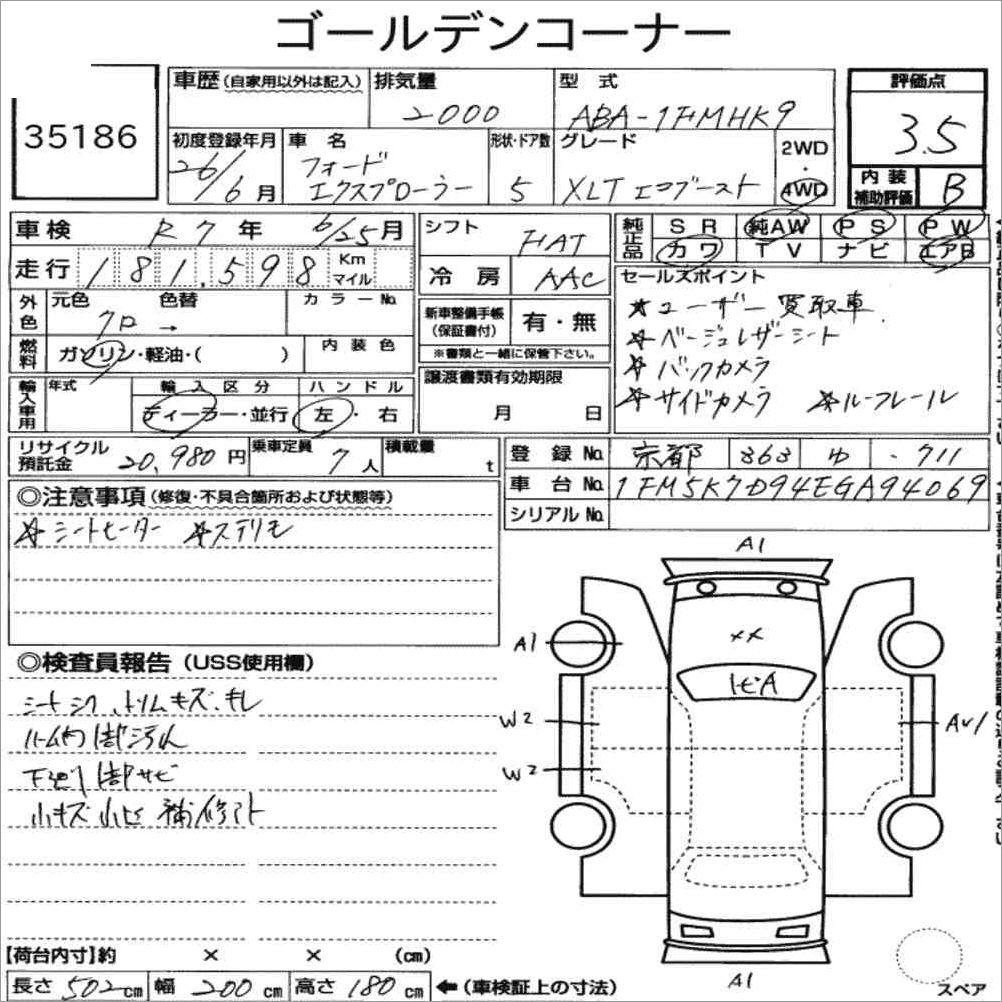 ゴールデンコーナー
35186
車歴(自家用以外は記入) 排気量 2000 型式 ABA-1FMHK9 評価点 3.5
初度登録年月 26/6月 車名 フォード エクスプローラー 形状・ドア数 5 グレード XLT エコブースト 2WD・4WD 内装補助評価 B
車検 R7年 6/25月 シフト FAT 純正品 SR 純AW PS PW
カワ TV ナビ エアB
走行 181,598 Km マイル 冷房 AAC
セールスポイント
★ユーザー買取車
★ベージュレザーシート
★バックカメラ
★サイドカメラ ★ルーフレール
外色 元色 クロ → 色替 カラーNo.
新車整備手帳(保証書付) 有・無
※書類と一緒に保管下さい。
燃料 ガソリン・軽油・( ) 内装色
譲渡書類有効期限 月 日
輸入車用 年式 輸入区分 ディーラー・並行 ハンドル 左・右
リサイクル預託金 20,980円 乗車定員 7人 積載量 t
登録No. 京都 363 ゆ ・711
車台No. 1FM5K7D94EGA94069
シリアルNo.
◎注意事項(修復・不具合箇所および状態等)
☆シートヒーター ☆ステリモ
◎検査員報告(USS使用欄)
シートシワ、トリムキズ、キレ
ルーム内1部汚れ
下廻り1部サビ
小キズ 小ヒビ 補修アト
A1
A1
XX
トビA
W2
W2
AU1
A1
【荷台内寸】約 × × (cm)
長さ 502cm 幅 200cm 高さ 180cm ←(車検証上の寸法)
スペア